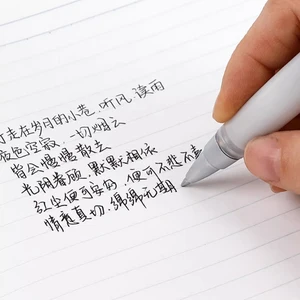 行走在岁月的小巷，听风，读雨
夜色空寂，一切烟云
皆会慢慢散去
光阴着顾，默默相依
红尘便可安向，便可不悲不喜
情意真切，绵绵无期